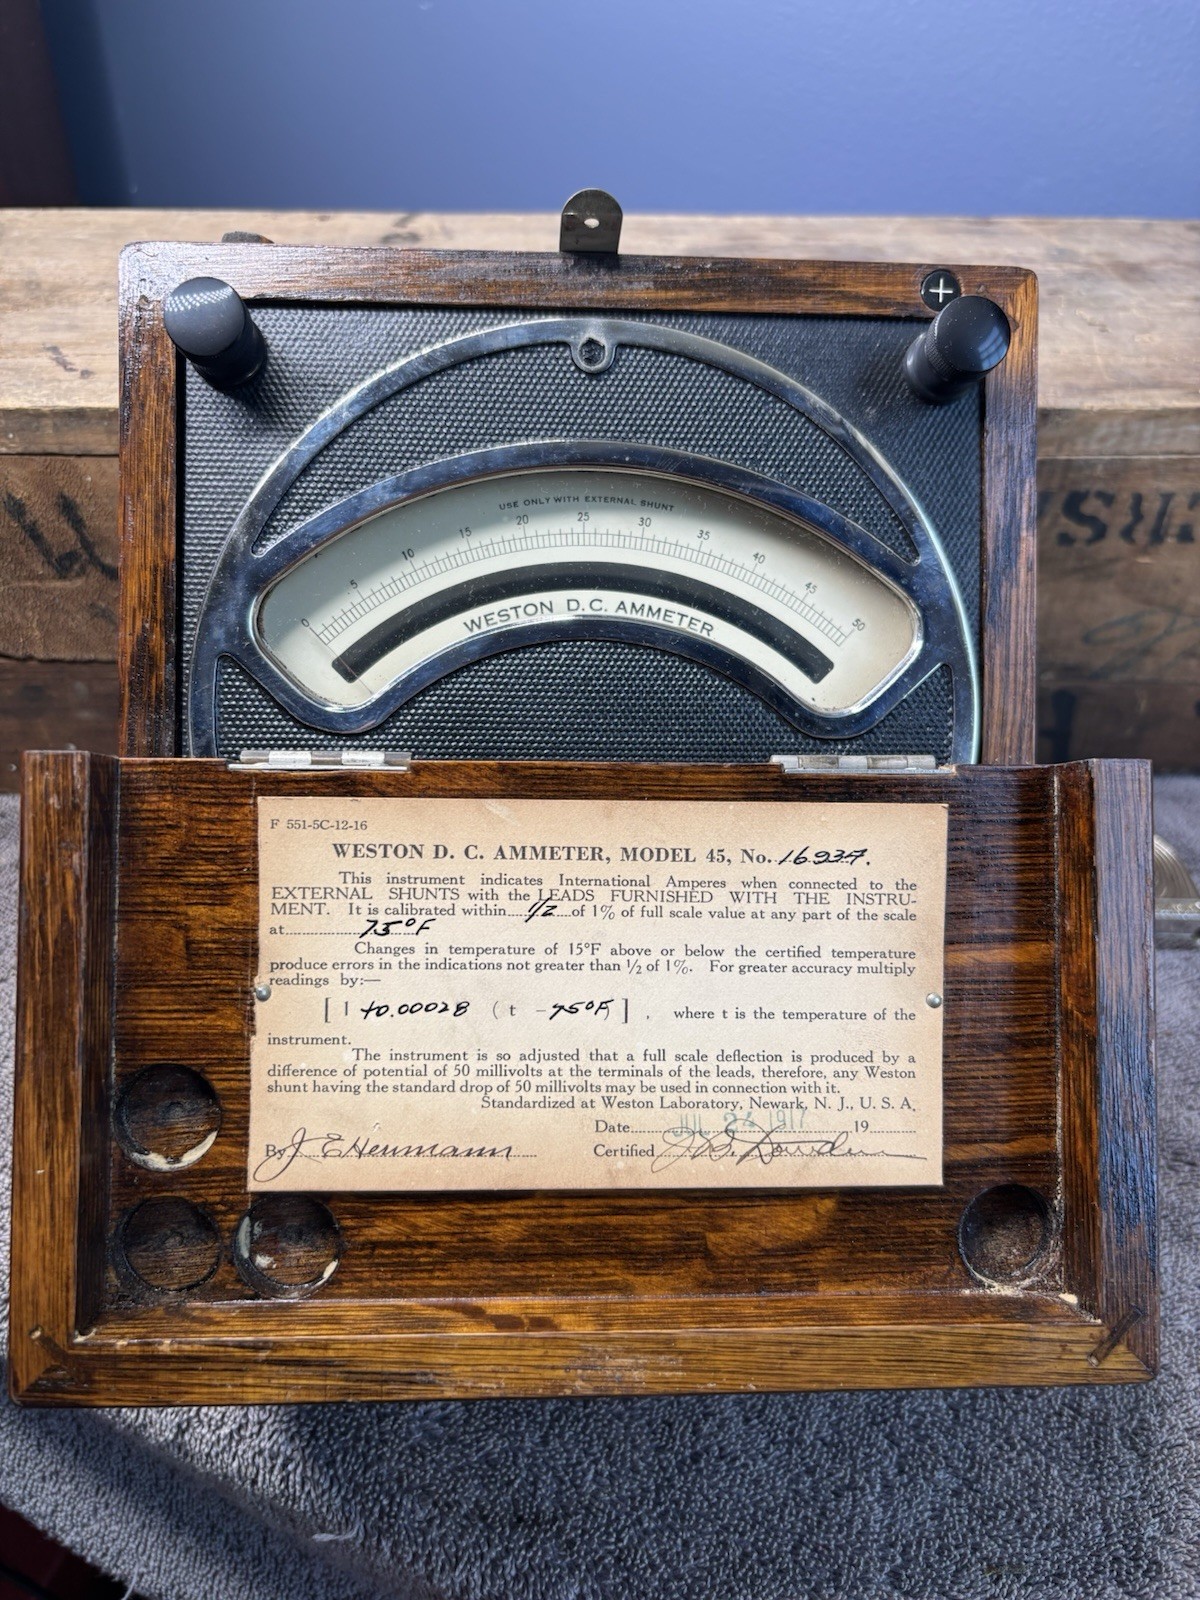 +
USE ONLY WITH EXTERNAL SHUNT
0 5 10 15 20 25 30 35 40 45 50
WESTON D.C. AMMETER
F 551-5C-12-16
WESTON D. C. AMMETER, MODEL 45, No. 16937.
This instrument indicates International Amperes when connected to the
EXTERNAL SHUNTS with the LEADS FURNISHED WITH THE INSTRU-
MENT. It is calibrated within 1/2 of 1% of full scale value at any part of the scale
at 75°F
Changes in temperature of 15°F above or below the certified temperature
produce errors in the indications not greater than ½ of 1%. For greater accuracy multiply
readings by:—
[ 1 +0.00028 ( t - 75°F) ] , where t is the temperature of the
instrument.
The instrument is so adjusted that a full scale deflection is produced by a
difference of potential of 50 millivolts at the terminals of the leads, therefore, any Weston
shunt having the standard drop of 50 millivolts may be used in connection with it.
Standardized at Weston Laboratory, Newark, N. J., U. S. A.
Date JUL 24 1917 19
By J E Heumann Certified